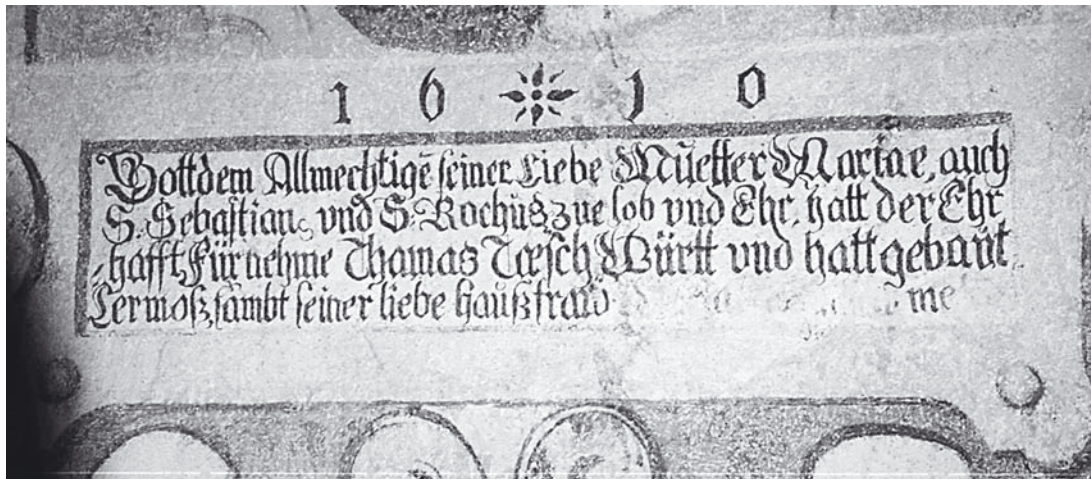 16 10
Gott dem Allmechtigē seiner Liebe Müetter Mariae, auch
S: Sebastian, vnd S: Rochus, zue lob vnd Ehr, hatt der Ehr
hafft, Fürnehme Thamas Tæsch, Württ vnd hatt gebaut
Lermosz, sambt seiner liebe haußfraw